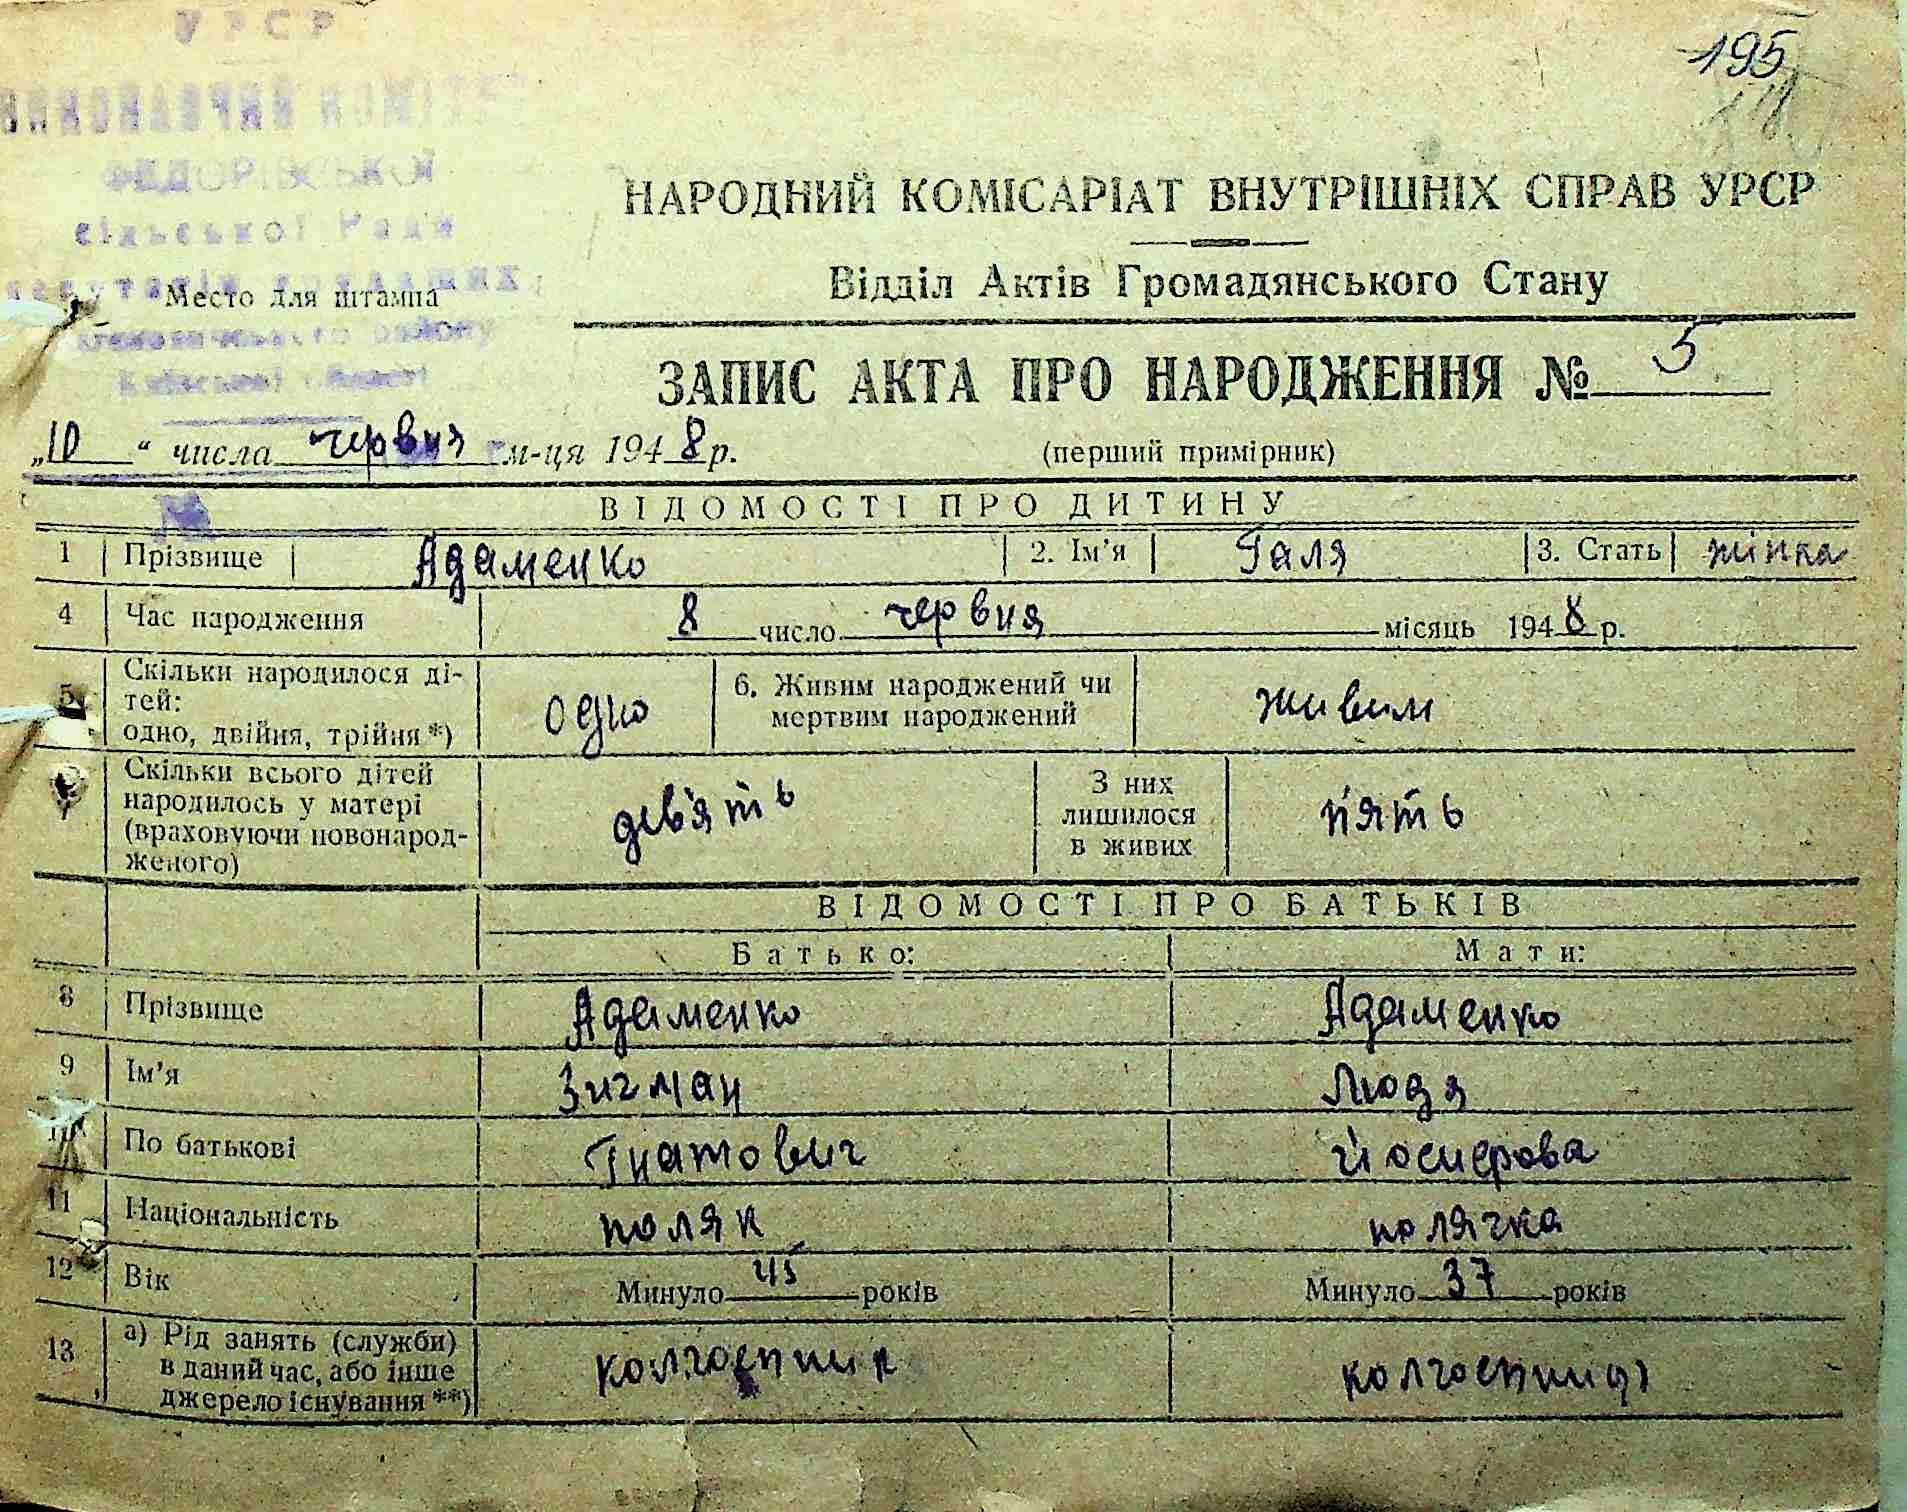 УРСР
ВИКОНАВЧИЙ КОМІТЕТ
ФЕДОРІВСЬКОЇ
сільської Ради
депутатів трудящих
району
Київської області
Место для штампа
195
НАРОДНИЙ КОМІСАРІАТ ВНУТРІШНІХ СПРАВ УРСР
Відділ Актів Громадянського Стану
ЗАПИС АКТА ПРО НАРОДЖЕННЯ № 5
„10“ числа червня м-ця 1948 р. (перший примірник)
ВІДОМОСТІ ПРО ДИТИНУ
1 Прізвище Адаменко 2. Ім’я Галя 3. Стать жінка
4 Час народження 8 число червня місяць 1948 р.
5 Скільки народилося ді-
тей:
одно, двійня, трійня *) одно 6. Живим народжений чи
мертвим народжений живим
Скільки всього дітей
народилось у матері
(враховуючи новонарод-
женого) дев'ять З них
лишилося
в живих п'ять
ВІДОМОСТІ ПРО БАТЬКІВ
Батько: Мати:
8 Прізвище Адаменко Адаменко
9 Ім’я Зигман Людя
10 По батькові Гнатович Йосиерова
11 Національність поляк полячка
12 Вік Минуло 45 років Минуло 37 років
13 а) Рід занять (служби)
в даний час, або інше
джерело існування **) колгоспник колгоспниця